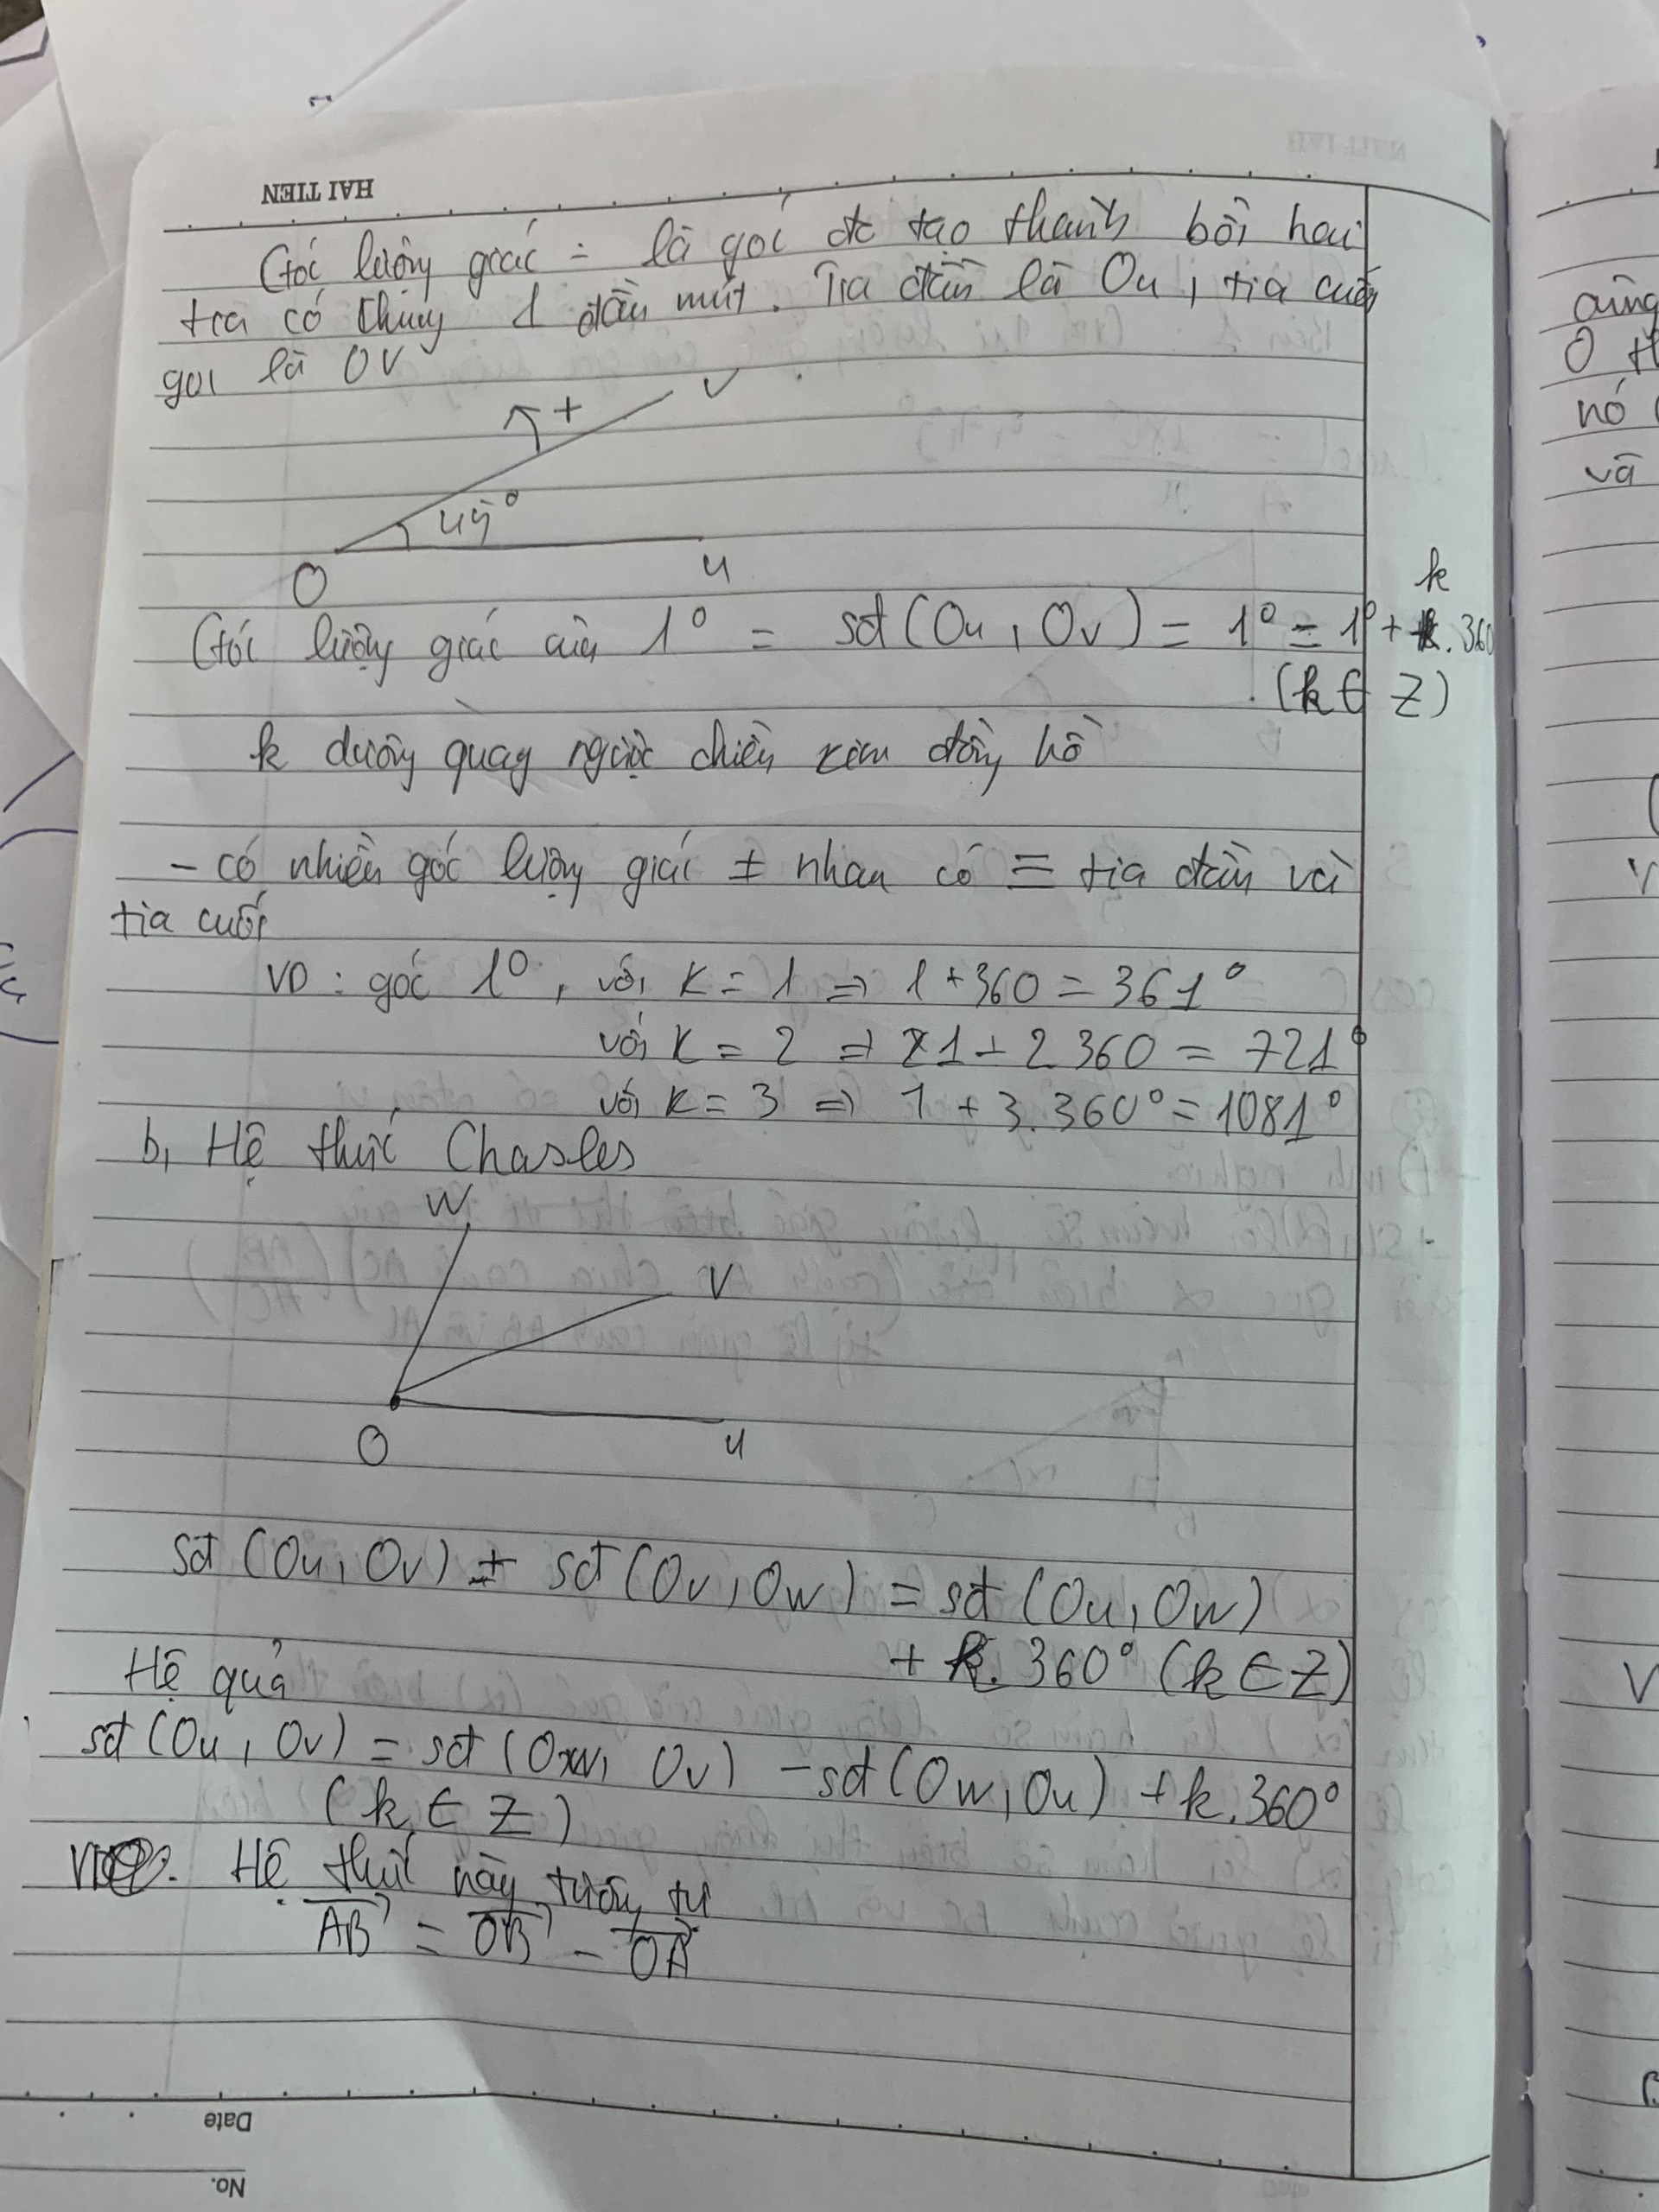 HAI TIEN
Góc lượng giác = là góc đc tạo thành bởi hai
tia có chung 1 đầu mút. Tia đầu là Ou, tia cuối
gọi là OV
+
V
45°
O
u
k
Góc lượng giác của 1° = sđ(Ou, Ov) = 1° = 1° + k.360
(k∈Z)
k dương quay ngược chiều kim đồng hồ
- có nhiều góc lượng giác ≠ nhau có ≡ tia đầu và
tia cuối
VD: góc 1°, với K = 1 ⇒ 1+360 = 361°
với K = 2 ⇒ 1+2 360 = 721°
với K = 3 ⇒ 1 + 3.360° = 1081°
b, Hệ thức Chasles
W
V
O
u
sđ (Ou, Ov) + sđ (Ov, Ow) = sđ (Ou, Ow)
+ k.360° (k∈Z)
Hệ quả
sđ (Ou, Ov) = sđ (Ow, Ov) - sđ (Ow, Ou) + k.360°
(k∈Z)
Hệ thức này tương tự
AB = OB - OA
Date
No.